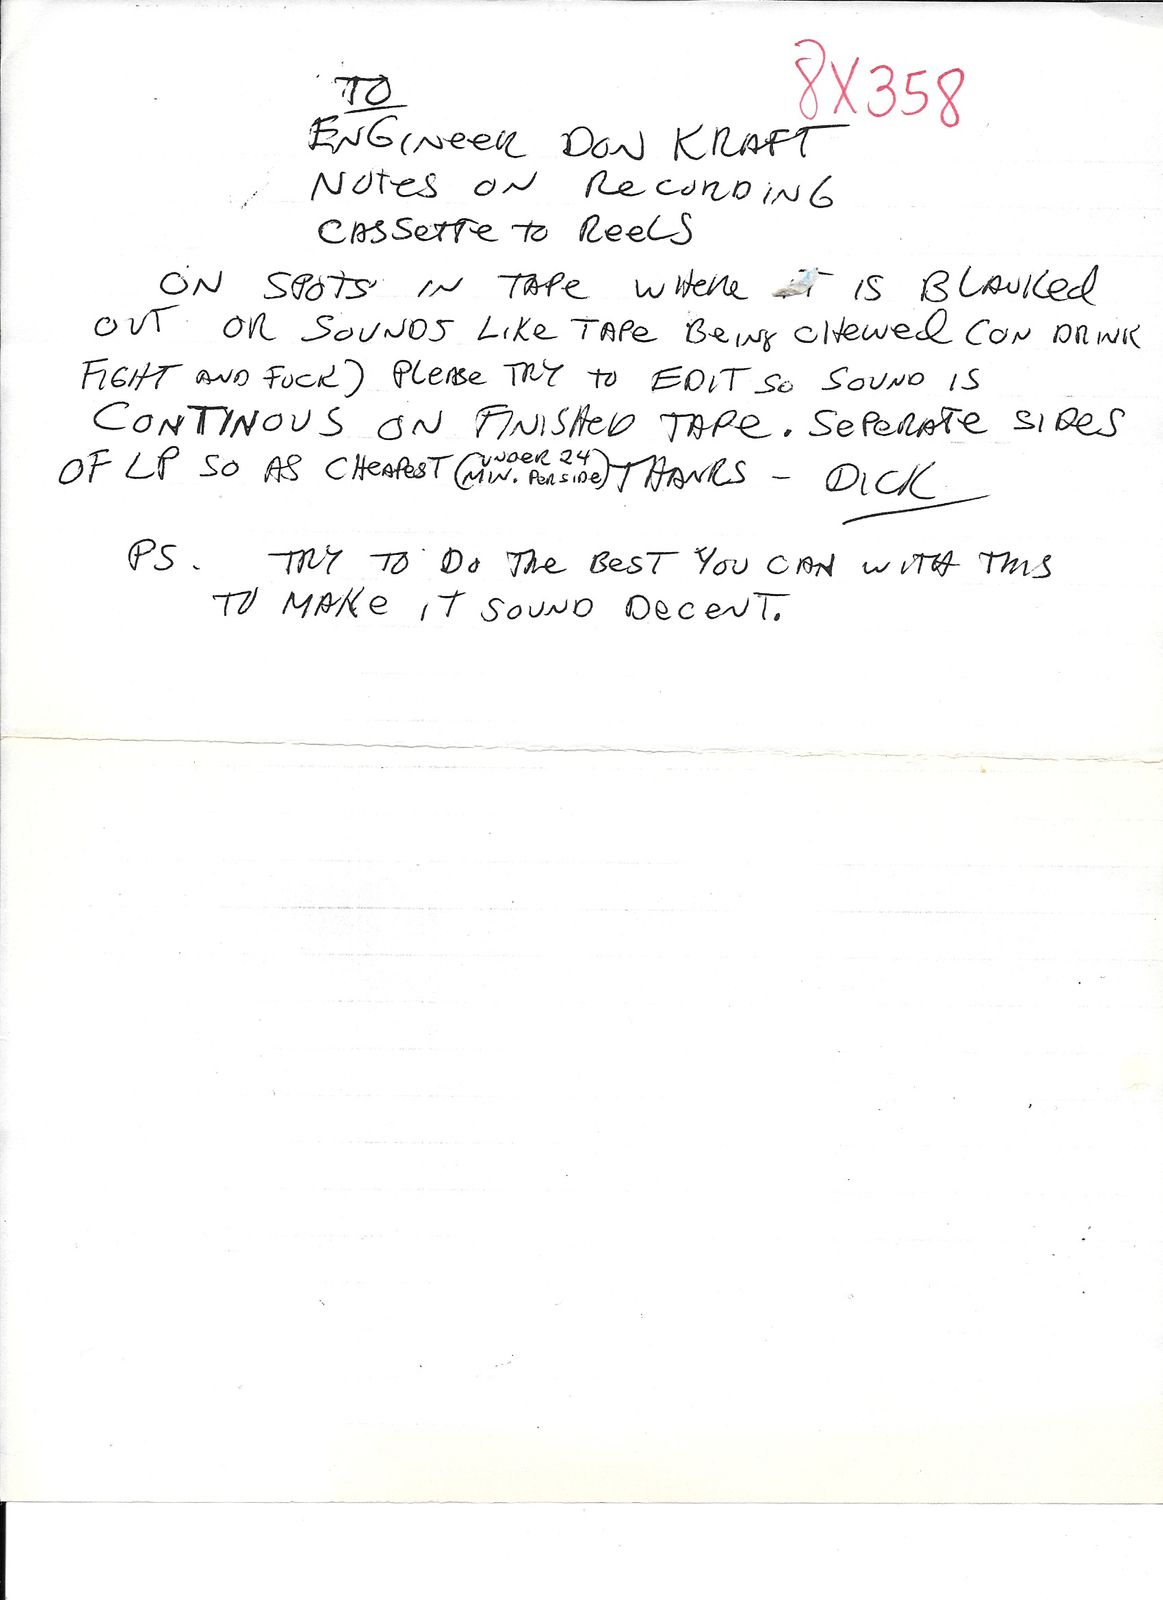 8X358
TO
ENGINEER DON KRAFT
NOTES ON RECORDING
CASSETTE TO REELS
ON SPOTS IN TAPE WHERE IT IS BLANKED
OUT OR SOUNDS LIKE TAPE BEING CHEWED (ON DRINK
FIGHT AND FUCK) PLEASE TRY TO EDIT SO SOUND IS
CONTINOUS ON FINISHED TAPE. SEPERATE SIDES
OF LP SO AS CHEAPEST (UNDER 24 MIN. PER SIDE) THANKS - DICK
PS. TRY TO DO THE BEST YOU CAN WITH THIS
TO MAKE IT SOUND DECENT.